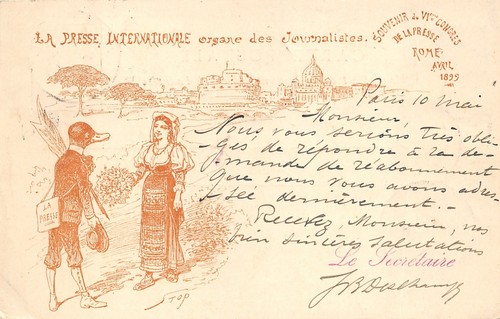 LA PRESSE INTERNATIONALE organe des Journalistes.
SOUVENIR du VIme CONGRES
DE LA PRESSE
ROME
AVRIL
1899
Paris 10 mai
Monsieur,
Nous vous serions très obli-
gés de répondre à la de-
mande de réabonnement
que nous vous avons adres-
sée dernièrement. -
Recevez, Monsieur, nos
bien sincères salutations
Le Secrétaire
LA
PRESSE
STOP